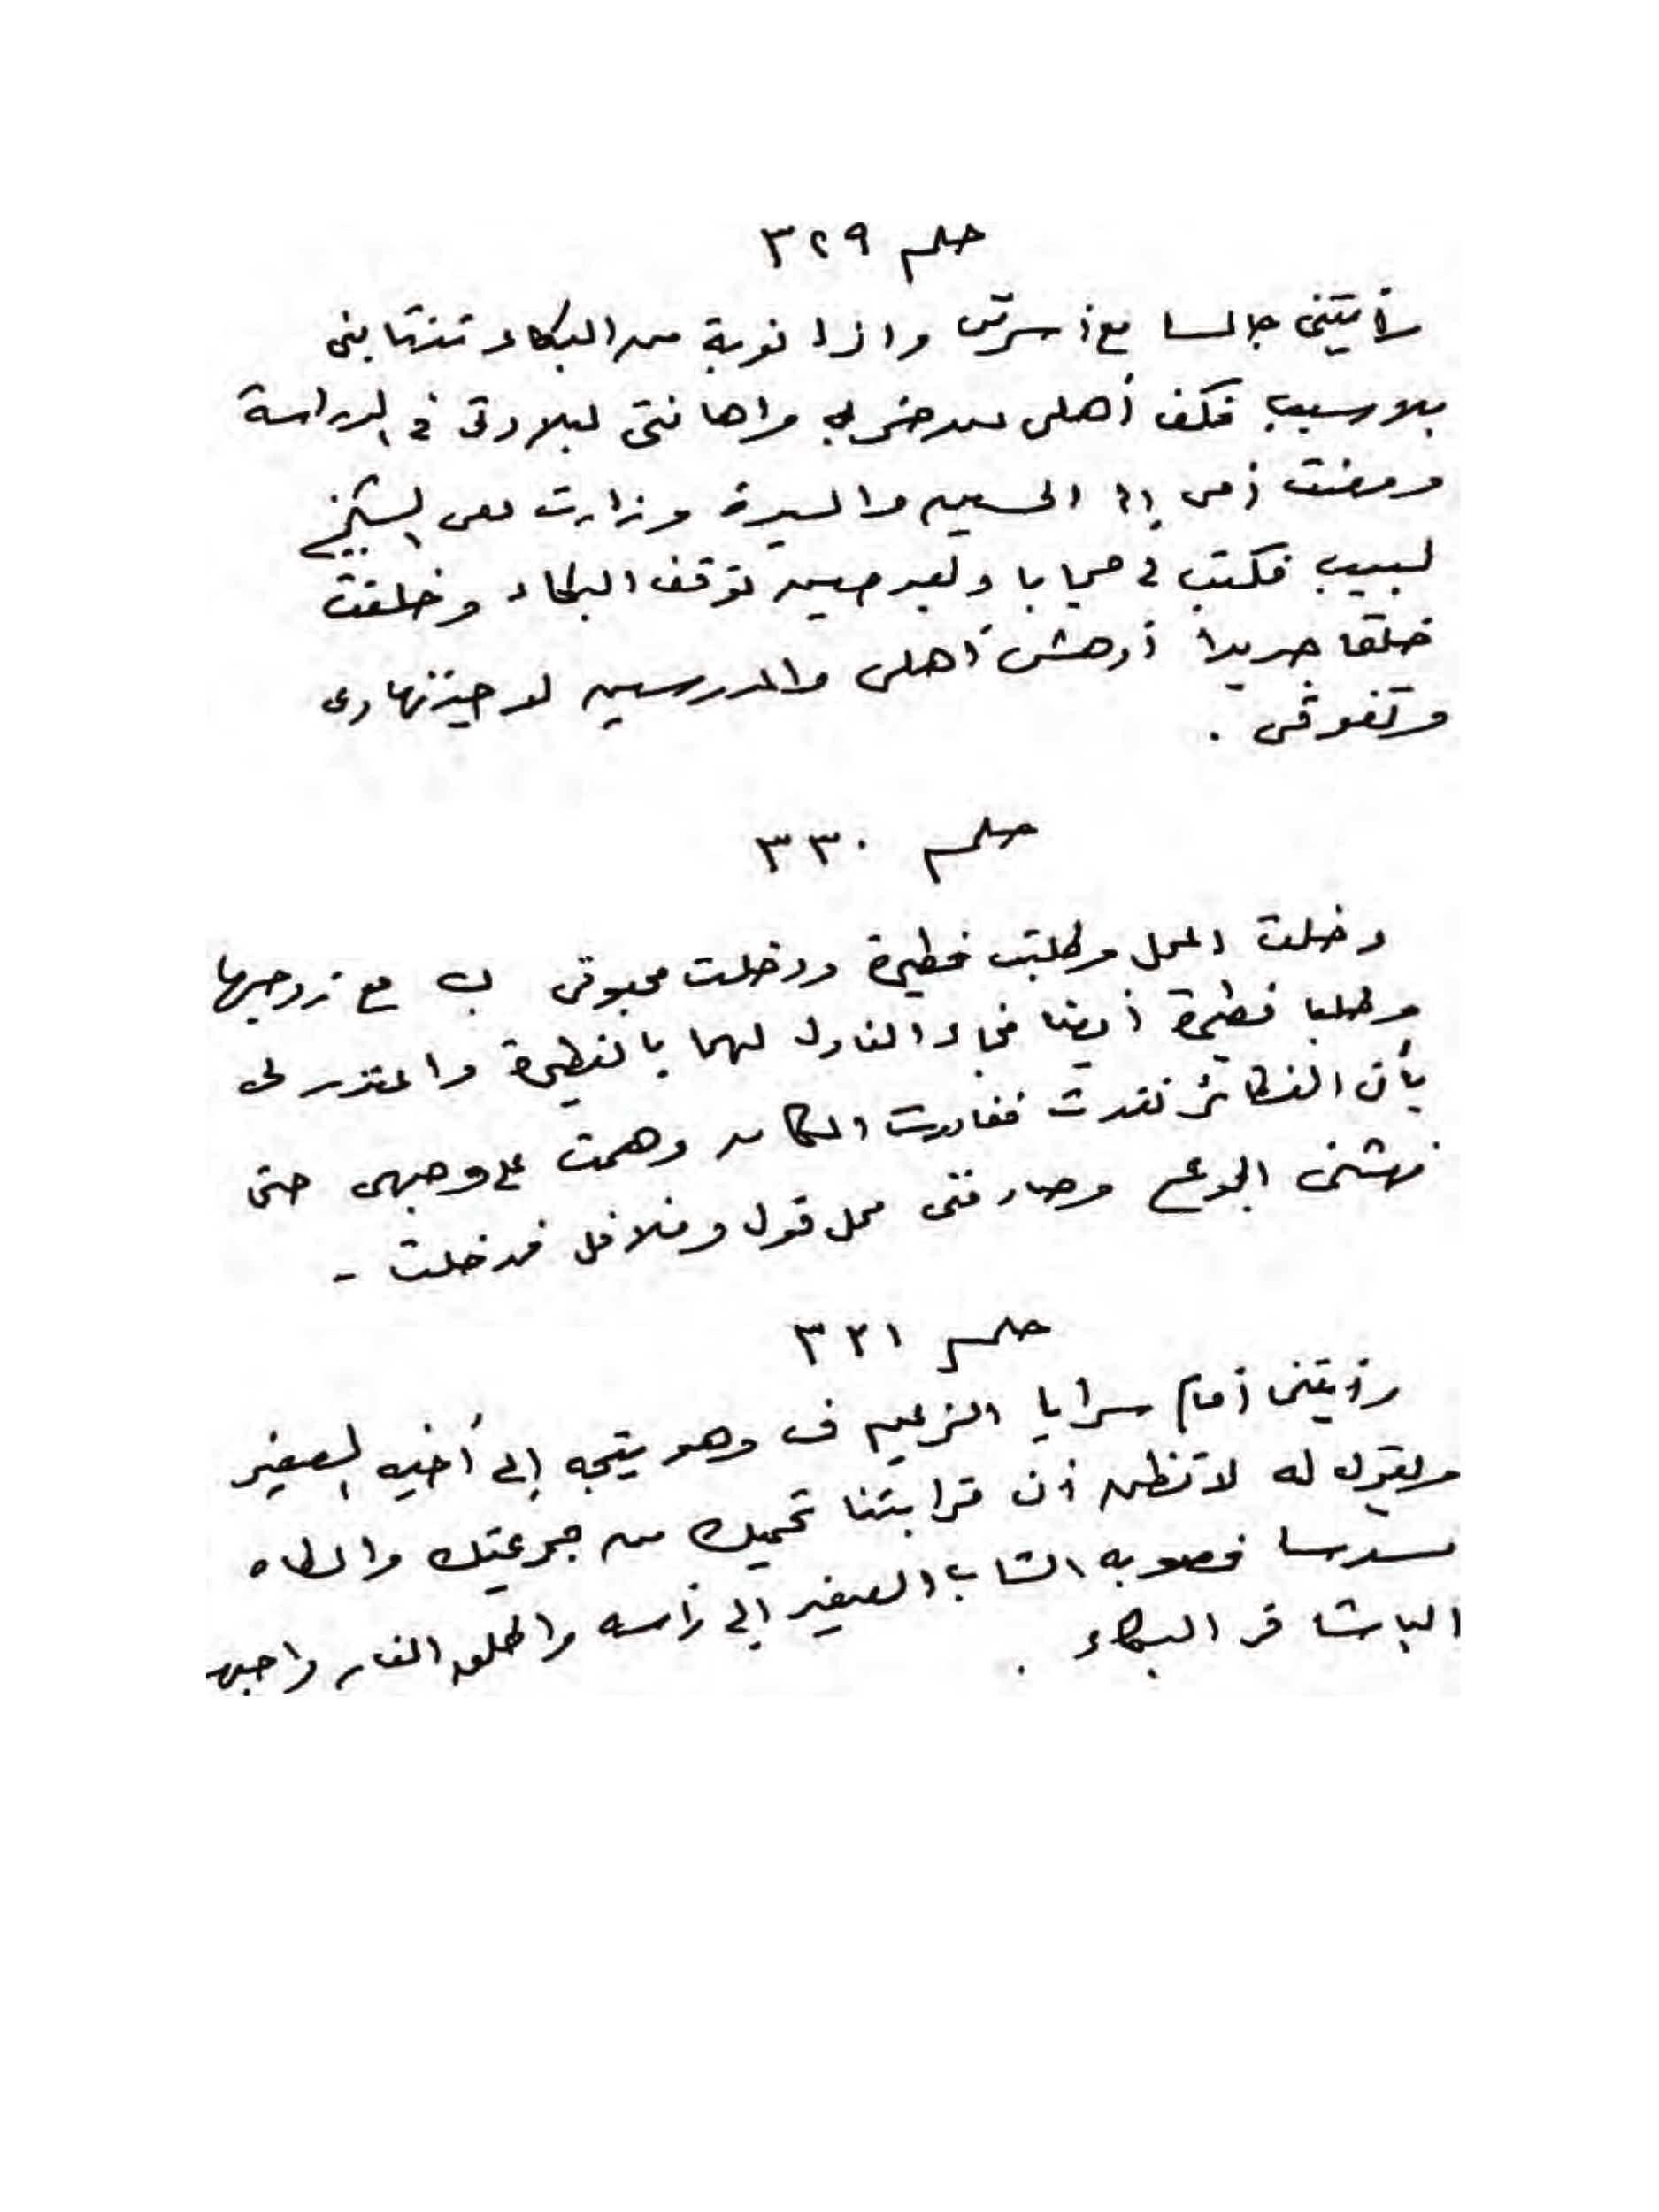 حلم ٣٢٩
رأيتنى جالسا مع أسرتى واذا نوبة من البكاء تنتابنى
بلا سبب فكف أهلى عن ضربى واهانتى لبلادتى فى الدراسة
ومضت أمى إلى الحسين والسيدة وزارت معى الشيخ
لبيب فكتب لى حجابا وبعد حين توقف البكاء وخلقت
خلقا جديدا أدهش أهلى والمدرسين لاجتهادى
وتفوقى .
حلم ٣٣٠
دخلت المحل وطلبت فطيرة ودخلت محبوبتى ب مع زوجها
وطلبا فطيرة أيضا فجاء النادل لهما بالفطيرة واعتذر لى
بأن الفطائر نفدت فغادرت المكان وهمت على وجهى حتى
نهشنى الجوع وصادفنى محل فول وفلافل فدخلت -
حلم ٣٣١
رأيتنى أمام سرايا الزعيم ف وهو يتجه إلى أخيه الصغير
ويقول له لا تظن أن قرابتنا تحميك من جرعتك واعطاه
مسدسا فصوبه الشاب الصغير إلى رأسه واطلق النار واجهش
الباشا فى البكاء .